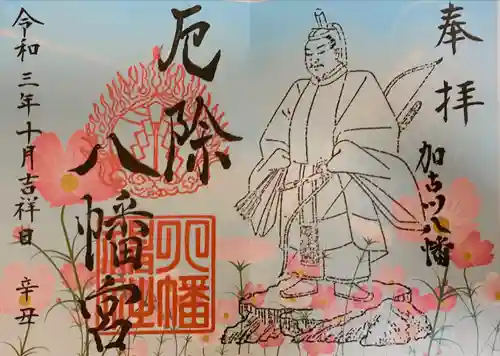 奉拝
加古川八幡
厄除
八幡宮
八幡神社
令和三年十月吉祥日 辛丑